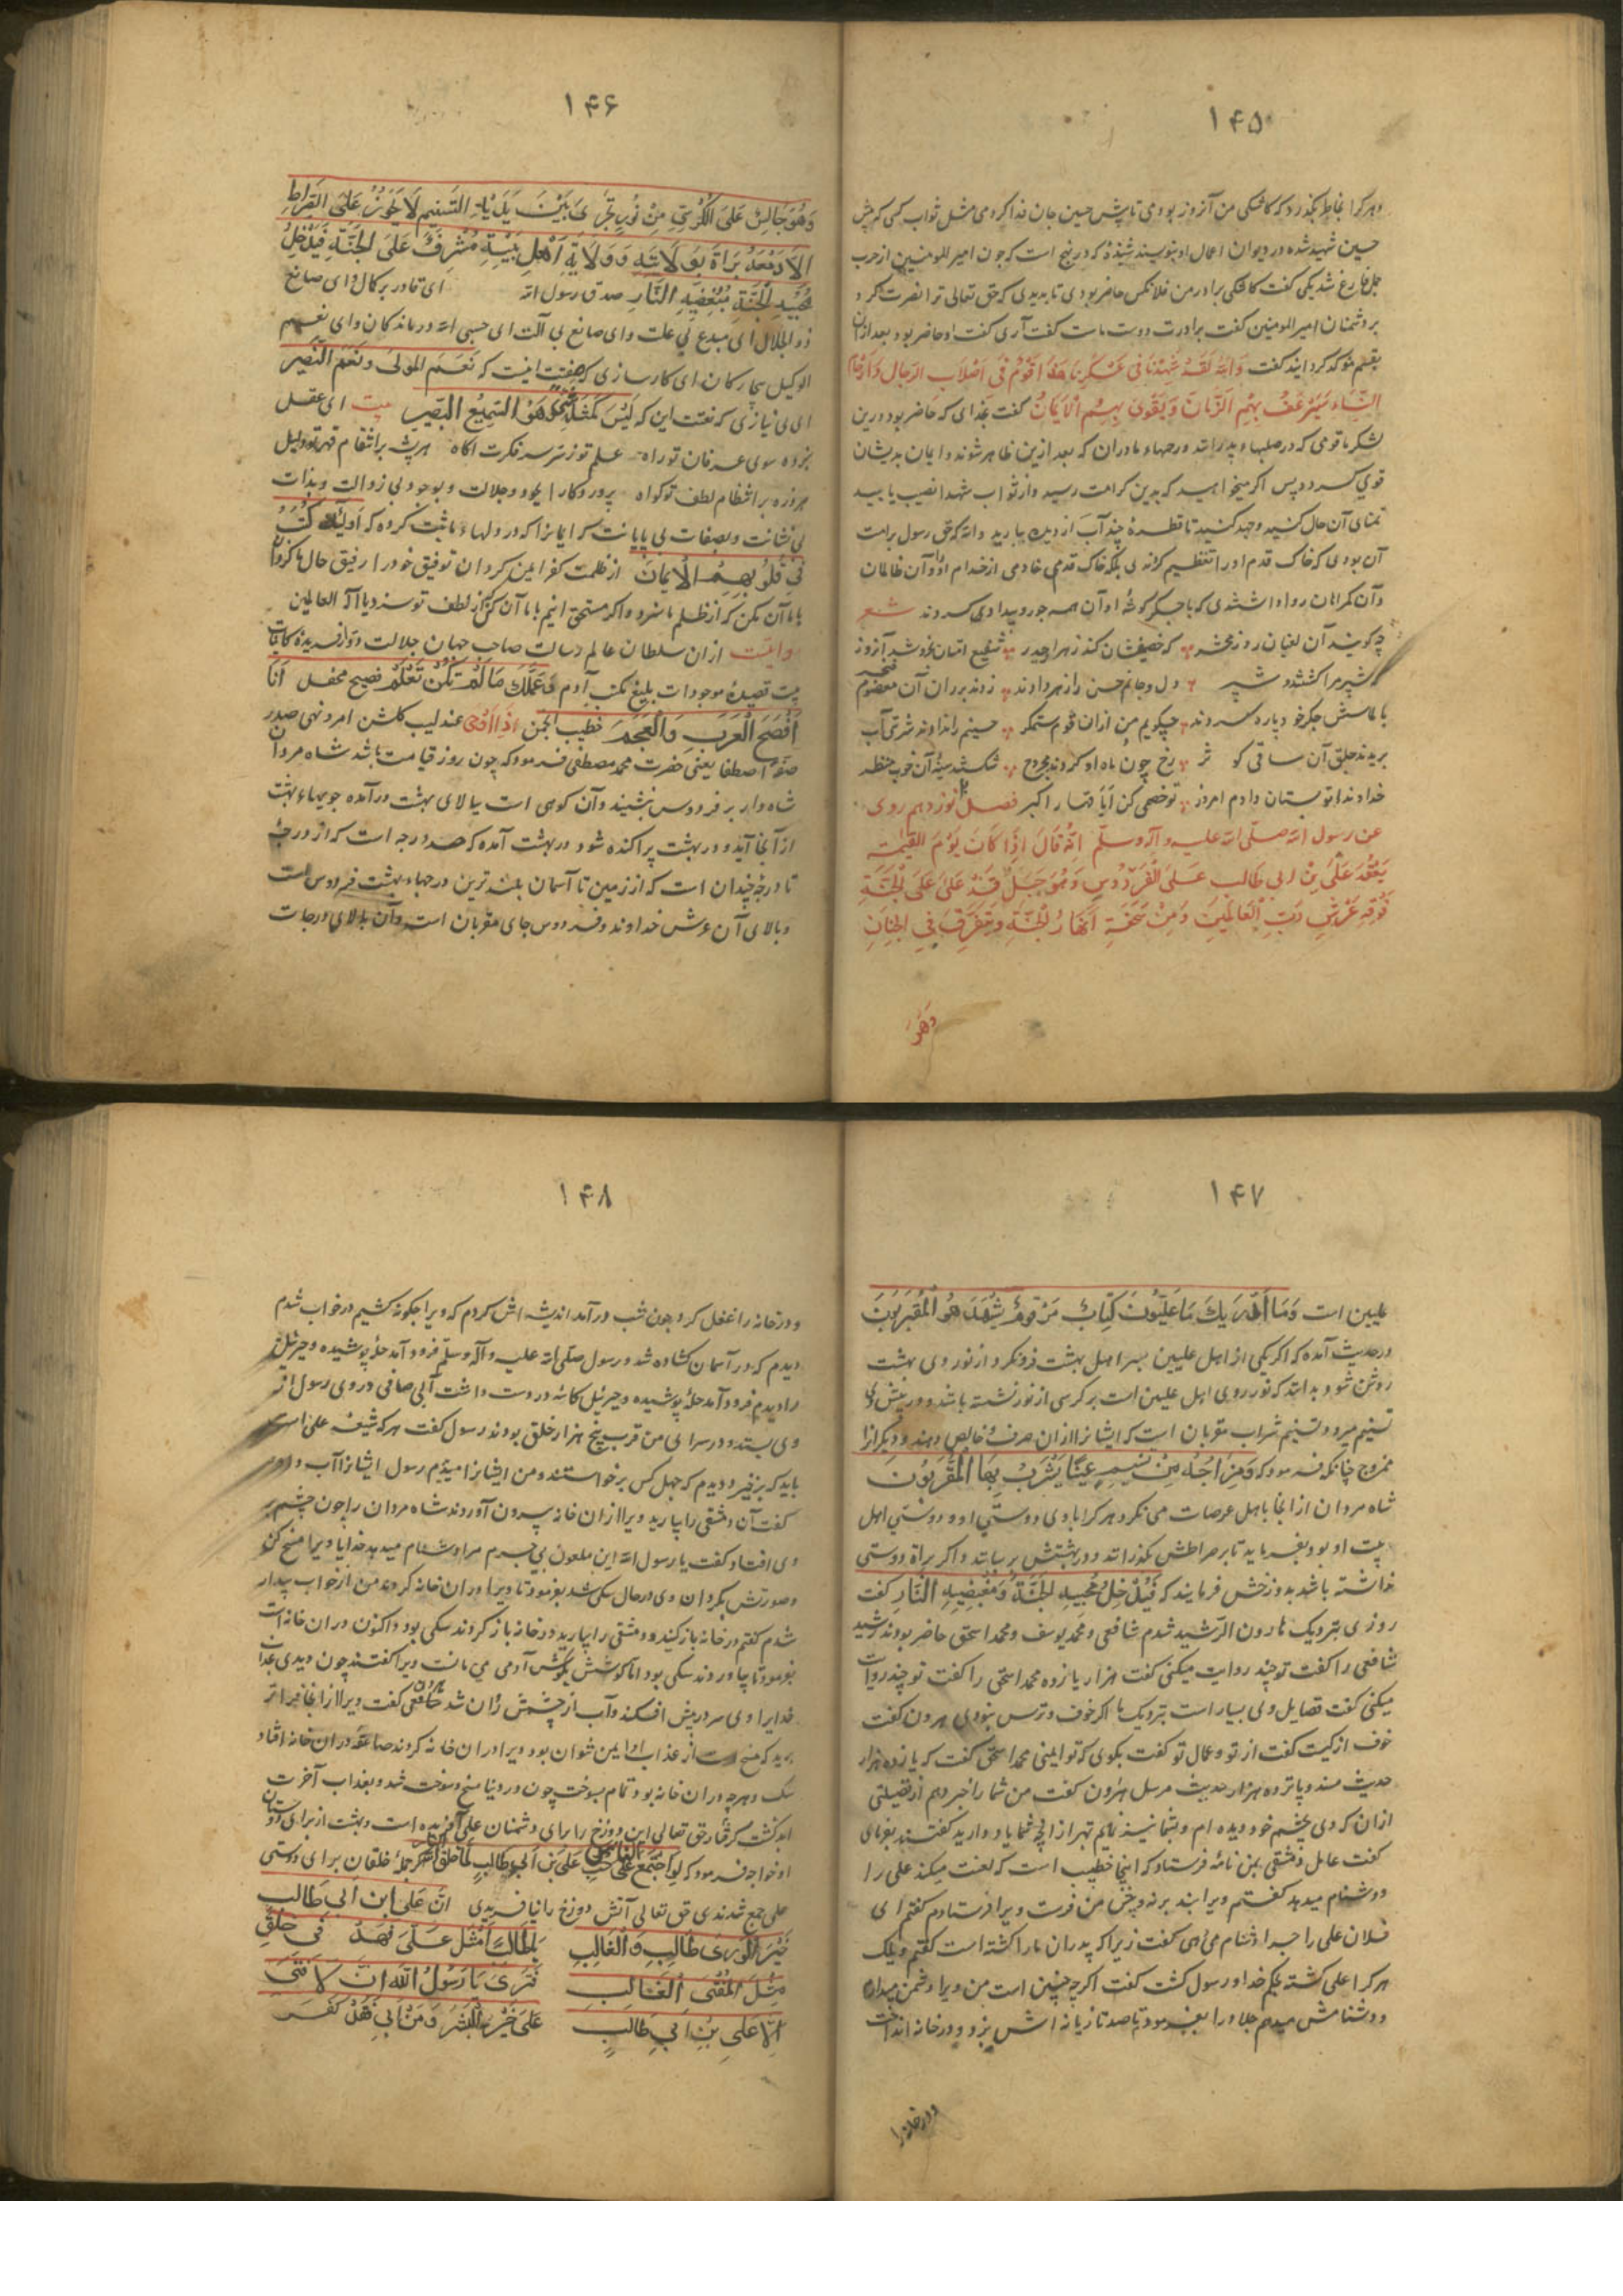 ۱۴۵
و هر کرا بخاطر بگذرد که کاشکی من آنروز بودمی تا پیش حسین جان فدا کردمی مثل ثواب کسی که پیش
حسین شهید شده در دیوان اعمال او بنویسند شنیده که در نهج است که چون امیر المومنین از حرب
جمل فارغ شد یکی گفت کاشکی برادر من فلانکس حاضر بودی تا بدیدی که حق تعالی ترا نصرت کرد
بر دشمنان امیر المومنین گفت برادرت دوست ماست گفت آری گفت او حاضر بود بعد ازان
بقسم موکد کردانید گفت وَاللهِ لَقَدْ شَهِدْنَا فِی عَسْکَرِنَا هَذَا قَوْمٌ فِی اَصْلَابِ الرِّجَالِ وَاَرْحَامِ
النِّسَاءِ سَیَرْعَفُ بِهِمُ الزَّمَانُ وَیَقْوَی بِهِمُ الْاِیمَانُ گفت بخدای که حاضر بود درین
لشکر ما قومی که در صلبهاء پدرانند و رحمهاء مادران که بعد ازین ظاهر شوند و ایمان بدیشان
قوی کردد پس اکر میخواهید که بدین کرامت رسید و از ثواب شهدا نصیب یابید
تمنای آن حال کنید و جهد کنید تا قطرهٔ چند آب از دیده ببارید والله که حق رسول برامت
آن بودی که خاک قدم او را تعظیم کردندی بلکه خاک قدمی خادمی از خدام او آن ظالمان
و آن کمراهان روا داشتندی که با جکر کوشهٔ او آن همه جور و بیدادی کردند شعر
چه کویند آن لعینان روز محشر که خصمشان کند زهرا و حیدر شفیع امتان بخروشد آنروز
که شبیر مرا کشتند و شبر دل و جانم حسن را زهر دادند زدند بران آن معصوم خنجر
بالماس جکر خود پاره کردند چکویم من ازان قوم ستمکر حسینم را ندادند شربتی آب
بریدند حلق آن ساقی کوثر رخ چون ماه او کردند مجروح شکستند سینهٔ آن خوب منظر
خداوندا تو بستان دادم امروز تو خصمی کن ایا قهار اکبر فصل نوزدهم روی
عن رسول الله صلّی الله علیه و آله وسلّم اَنَّهُ قَالَ اِذَا کَانَ یَوْمَ الْقِیٰمَةِ
یَقْعُدُ عَلَی بْنِ ابی طَالِب عَلَی الْفِرْدَوْسِ وَهُوَ جَبَلٌ قَدْ عَلَی عَلَی الْجَنَّةِ
فَوْقَهُ عَرْشِ رَبِّ الْعَالَمِینَ وَمِنْ سَفْحَهِ اَنْهَارُ الْجَنَّةِ وَتَفَرَّقَ فِی الْجِنَانِ
وَهُوَ
۱۴۶
وَهُوَ جَالِسٌ عَلَی الْکُرْسِیِّ مِنْ نُورٍ تَجْرِی بَیْنَ یَدَیْهِ التَّسْنِیم لَا یَجُوزُ عَلَی الصِّرَاطِ
اِلَّا وَمَعَهُ بَرَاةٌ بِوَلَایَتِهِ وَوَلَایَةِ اَهْلِ بَیْتِهِ مُشْرِفٌ عَلَی الْجَنَّةِ فَیُدْخِلُ
مُحِبِّیهِ الْجَنَّةَ مُبْغِضِیهِ النَّارِ صدق رسول الله ای قادر بر کمال و ای صانع
ذو الجلال ای مبدع بی علت و ای صانع بی آلت ای حسبی الله درماندکان و ای نعم
الوکیل بیچارکان ای کارسازی که صفتت اینست که نَعَمَ الْمَوْلَی وَنَعَمَ النَّصِیر
ای بی نیازی که نعتت این که لَیْسَ کَمِثْلِهِ شَیْءٌ وَهُوَ السَّمِیعُ الْبَصِیر بیت ای عقل
نبرده سوی عرفان تو راه علم تو ز سر سر فکرت آکاه هر پشه بر انتقام قهر تو دلیل
هر ذره بر انتظام لطف تو کواه پروردکارا بجود و جلالت و بوجود بی زوالت و بذات
بی نشانت و بصفات بی پایانت که ایمانرا که در دلهاء ما ثبت کرده که اُولٰئِکَ کَتَبَ
فِی قُلُوبِهِمُ الْاِیمَانَ از ظلمت کفر ایمن کردان توفیق خود را رفیق حال ما کردان
با ما آن مکن که از ظلم ما سزد و اکر مستحق آنیم با ما آن کن کز لطف تو سزد یا اله العالمین
روایتست ازان سلطان عالم رسالت صاحب جهان جلالت و تو آفریدهٔ کاینات
بیت قصیدهٔ موجودات بلیغ مکتب آدم وَعَلَّمَکَ مَا لَمْ تَکُنْ تَعْلَمُ فصیح محفل اَنَا
اَفْصَحُ الْعَرَبِ وَالْعَجَمِ خطیب انجمن اِذَا اَوْحٰی عندلیب کلشن امر و نهی صدر
صفهٔ اصطفا یعنی حضرت محمد مصطفی فرمود که چون روز قیامت باشد شاه مردان
شاه وار بر فردوس بنشیند و آن کوهی است ببالای بهشت درآمده جویهاء بهشت
از آنجا آید و در بهشت پراکنده شود و در بهشت آمده که صد درجه است که از درجهٔ
تا درجهٔ چندان است که از زمین تا آسمان بلندترین درجهاء بهشت فردوس است
و بالای آن عرش خداوند و فردوس جای مقربان است و آن بالای درجات
۱۴۷
علیین است وَمَا اَدْرَیکَ مَا عِلِّیُّونَ کِتَابٌ مَرْقُومٌ یَشْهَدُهُ الْمُقَرَّبُونَ
در حدیث آمده که اکر یکی از اهل علیین بسر اهل بهشت فرو نکرد از نور روی بهشت
روشن شود بدانند که نور روی اهل علیین است بر کرسی از نور نشسته باشد و در پیش وی
تسنیم میرود و تسنیم شراب مقربان است که ایشانرا ازان صرف و خالص دهند و دیکرانرا
ممزوج چنانکه فرمود که وَمِزَاجُهُ مِنْ تَسْنِیمٍ عَیْنًا یَشْرَبُ بِهَا الْمُقَرَّبُونَ
شاه مردان از انجا باهل عرصات می نکرد هر کرا با وی دوستی او و دوستی اهل
بیت او بود بفرماید تا بر صراطش بکذرانند و در بهشتش برسانند و اکر براة دوستی
نداشته باشد بدوزخش فرمایند که فَیُدْخِلُ مُحِبِّیهِ الْجَنَّةَ وَمُبْغِضِیهِ النَّارِ گفت
روزی بنزدیک هارون الرشید شدم شافعی و محمد یوسف و محمد اسحق حاضر بودند رشید
شافعی را گفت تو چند روایت میکنی گفت هزار پانزده محمد اسحق را گفت تو چند روایت
میکنی گفت فضایل ولی بسیار است بنزدیک ما اکر خوف و ترس نبودی هرون گفت
خوف از کیست گفت از تو و عمال تو گفت بکوی که تو ایمنی محمد اسحق گفت که پانزده هزار
حدیث مسند و پانزده هزار حدیث مرسل هٰرون گفت من شما را خبر دهم از فضیلتی
ازان که وی بچشم خود دیده ام و بشما نیز نمایم بهتر از انچه شما یاد دارید گفتند بفرمای
گفت عامل دمشقی بمن نامه فرستاد که اینجا خطیب است که لعنت میکند علی را
و دشنام میدهد گفتم ویرا بند برنه و پیش من فرست ویرا فرستادم گفتم ای
فلان علی را چرا دشنام میدهی گفت زیرا که پدران ما را کشته است گفتم ویلک
هر کرا علی کشته بحکم خدا و رسول کشت گفت اکرچه چنین است من ویرا دشمن میدارم
و دشنامش میدهم جلاد را بفرمود تا صد تازیانه اش بزد و در خانه انداخت
و در خانه را
۱۴۸
و در خانه را غفل کرد چون شب درآمد اندیشه اش کردم که ویرا چکونه کشیم در خواب شدم
دیدم که در آسمان کشاده شد و رسول صلّی الله علیه و آله وسلّم فرود آمد حلهٔ پوشیده و جبرئیل
را دیدم فرود آمد حلهٔ پوشیده و جبرئیل کاسهٔ در دست داشت آبی صافی در وی رسول از
وی بستد و در سرای من قرب پنج هزار خلق بودند رسول گفت هر که شیعهٔ علی است
باید که برخیزد دیدم که چهل کس برخواستند و من ایشانرا میدیدم رسول ایشانرا آب داد
گفت آن دمشقی را بیارید ویرا ازان خانه بیرون آوردند شاه مردان را چون چشم بر
وی افتاد گفت یا رسول الله این ملعون بی جرم مرا دشنام میدهد خدایا ویرا مسخ کن
و صورتش بکردان وی درحال سکی شد بفرمود تا ویرا دران خانه کردند من از خواب بیدار
شدم گفتم در خانه باز کنید و دمشقی را بیارید در خانه باز کردند سکی بود و اکنون دران خانه است
بفرمود تا بیاوردند سکی بود اما کوشش بکوش آدمی می مانست ویرا گفتند چون دیدی عذاب
خدایرا وی سر در پیش افکند و آب از چشمش روان شد شافعی گفت ویرا از اینجا فراتر
برید که مسخ است از عذاب او ایمن نتوان بود ویرا دران خانه کردند صاعقه دران خانه افتاد
سک و هرچه دران خانه بود تمام بسوخت چون در دنیا مسخ و سوخت شد و بعذاب آخرت
ابد کشت کرفتار حق تعالی این دوزخ را برای دشمنان علی آفریده است و بهشت از برای دوستان
او خواجه فرمود که لَوِ اجْتَمَعَ النَّاسُ عَلَی حُبِّ عَلِیِّ بْنِ اَبِی طَالِبٍ لَمَا خَلَقَ اللهُ النَّارَ اکر جملهٔ خلقان برای دوستی
علی جمع شدندی حق تعالی آتش دوزخ را نیافریدی اِنَّ عَلِیّ ابن اَبی طَالِب
خَیْرَ الْوَرَی طَالِبِ وَالْغَالِبِ
مِثْلَ الْفَتَی الْغَالِبِ فَتَرَی یَا رَسُولُ اللهِ اِنَّ لَا فَتَی
اِلَّا عَلِیِّ بْنِ ابی طَالِبٍ عَلَی خَیْرُ الْبَشَرِ وَمَنْ اَبَی فَقَدْ کَفَرَ